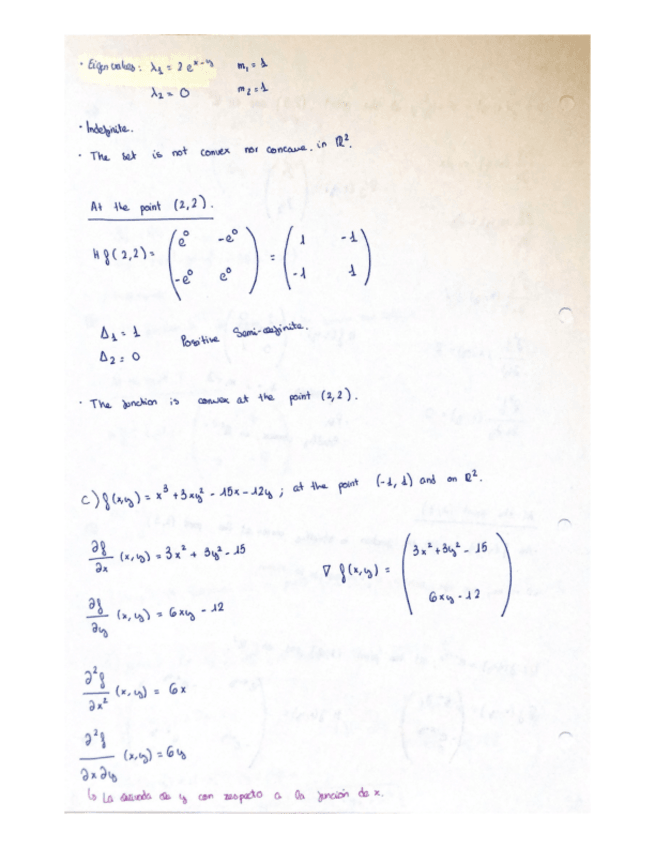 · Eigenvalues: λ₁ = 2 e^(x-y)   m₁ = 1
λ₂ = 0   m₂ = 1
· Indefinite.
· The set is not convex nor concave. in ℝ².
At the point (2,2).
H f(2,2) = ( e⁰  -e⁰ ; -e⁰  e⁰ ) = ( 1  -1 ; -1  1 )
Δ₁ = 1   Positive Semi-definite.
Δ₂ = 0
· The function is convex at the point (2,2).
c) f(x,y) = x³ + 3xy² - 15x - 12y ; at the point (-1, 1) and on ℝ².
∂f/∂x (x,y) = 3x² + 3y² - 15   ∇ f(x,y) = ( 3x² + 3y² - 15 ; 6xy - 12 )
∂f/∂y (x,y) = 6xy - 12
∂²f/∂x² (x,y) = 6x
∂²f/∂x∂y (x,y) = 6y
↳ La derivada de y con respecto a la función de x.